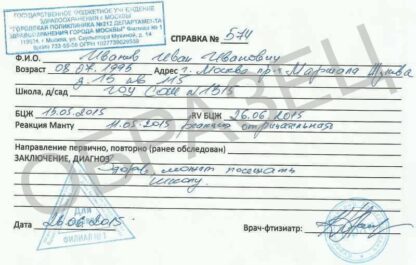 ГОСУДАРСТВЕННОЕ БЮДЖЕТНОЕ УЧРЕЖДЕНИЕ
ЗДРАВООХРАНЕНИЯ г. МОСКВЫ
"ГОРОДСКАЯ ПОЛИКЛИНИКА №212 ДЕПАРТАМЕНТА
ЗДРАВООХРАНЕНИЯ ГОРОДА МОСКВЫ" Филиал № 1
119614, г. Москва, ул. Скульптора Мухиной, д. 14
СПРАВКА № 574
Ф.И.О. Иванов Иван Иванович
Возраст 08.07.1995 Адрес г. Москва пр. Маршала Жукова
д. 15 кв 115
Школа, д/сад ГОУ СОШ №1315
БЦЖ 15.05.2015 RV БЦЖ 26.06.2015
Реакция Манту 11.05.2015 реакция отрицательная
Направление первично, повторно (ранее обследован)
ЗАКЛЮЧЕНИЕ, ДИАГНОЗ
Здоров, может посещать
школу
ОБРАЗЕЦ
ДЛЯ
ФИЛИАЛ №1
Дата 26.06.2015 Врач-фтизиатр: